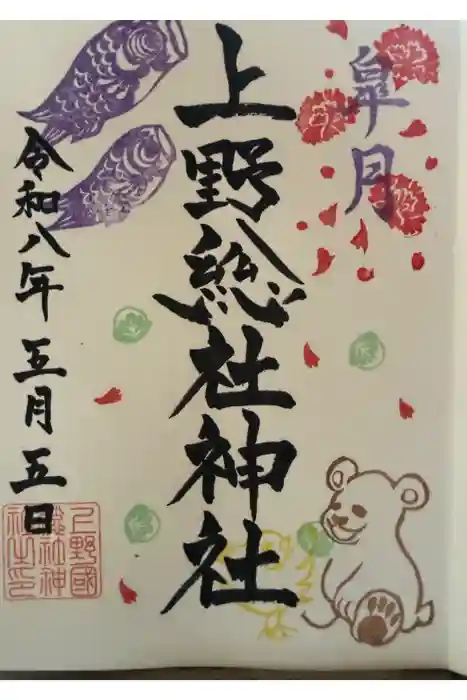 皐月
上野総社神社
令和八年五月五日
上野國
総社神
社之印